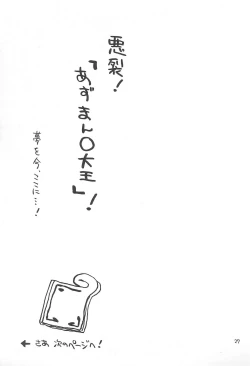 悪裂！
『あずまん○大王』！
夢を今、ここに…！
← さあ 次のページへ！